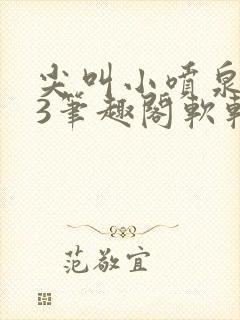 尖叫小喷泉
3笔趣阁软
范敬宜